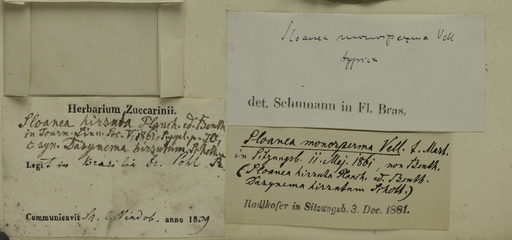 Herbarium Zuccarinii.
Sloanea hirsuta Planch. ed. Benth.
in Journ. Linn. Soc. V. 1861, Suppl. p.
c. syn. Dasynema hirsutum Schott
Legit in Brasilia Dr. Pohl
Communicavit Vindob. anno 1839
Sloanea monosperma Vell.
typica
det. Schumann in Fl. Bras.
Sloanea monosperma Vell. f. Mart.
in Sitzungsb. 11. Maj. 1861 non Benth.
(Sloanea hirsuta Planch. ed. Benth.
Dasynema hirsutum Schott.)
Radlkofer in Sitzungsb. 3. Dec. 1881.